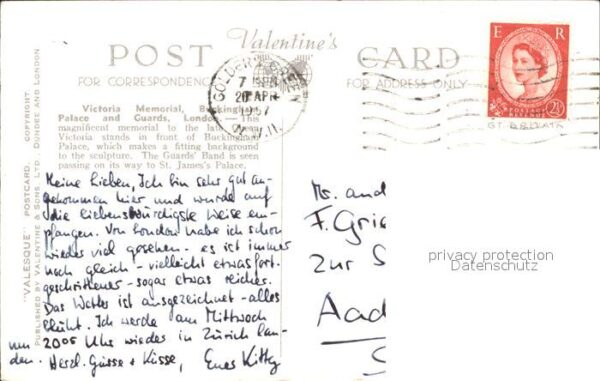 Valentine's
POST CARD
FOR CORRESPONDENCE FOR ADDRESS ONLY
E R
POSTAGE
REVENUE
2½
GT. BRITAIN
GOLDERS GREEN
7 PM
20 APR
1957
N.W.11.
Victoria Memorial, Buckingham
Palace and Guards, London.—This
magnificent memorial to the late Queen
Victoria stands in front of Buckingham
Palace, which makes a fitting background
to the sculpture. The Guards' Band is seen
passing on its way to St. James's Palace.
"VALESQUE" POSTCARD. COPYRIGHT.
PUBLISHED BY VALENTINE & SONS, LTD. DUNDEE AND LONDON
Meine Lieben, Ich bin sehr gut an-
gekommen hier und wurde auf
die liebenswürdigste Weise em-
pfangen. Von London habe ich schon
wieder viel gesehen - es ist immer
noch gleich - vielleicht etwas fort-
geschrittener - sogar etwas reicher.
Das Wetter ist ausgezeichnet - alles
blüht. Ich werde am Mittwoch
um 2005 Uhr wieder in Zürich lan-
den. Herzl. Grüsse + Küsse, Eure Kitty
Mr. and
F. Grie
zur S
Aad
S
privacy protection
Datenschutz